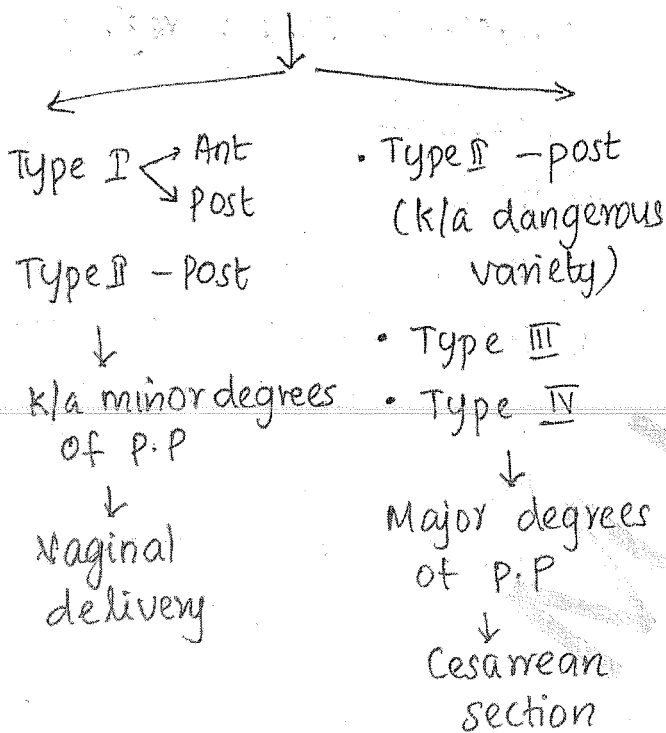 Type I Ant
Post
Type II - Post
k/a minor degrees
of P.P
Vaginal
delivery
• Type II - post
(k/a dangerous
variety)
• Type III
• Type IV
Major degrees
of P.P
Cesarrean
section